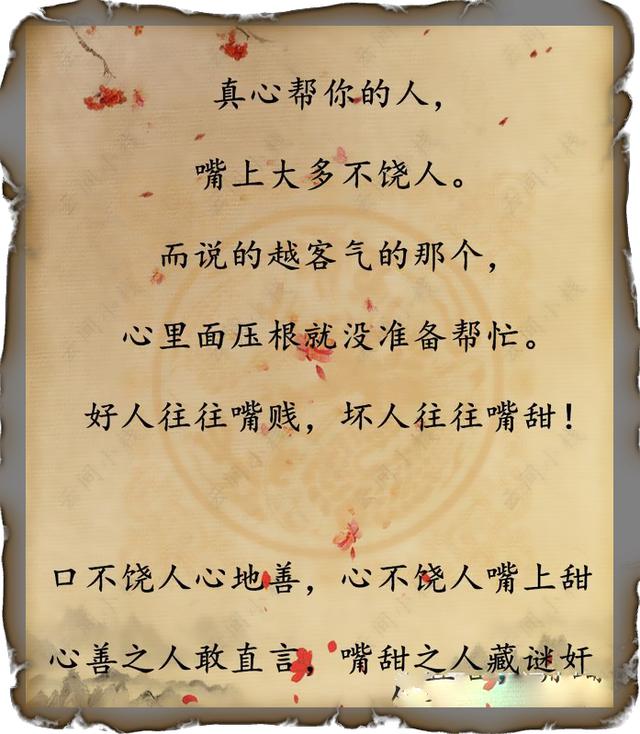 真心帮你的人，
嘴上大多不饶人。
而说的越客气的那个，
心里面压根就没准备帮忙。
好人往往嘴贱，坏人往往嘴甜！
口不饶人心地善，心不饶人嘴上甜
心善之人敢直言，嘴甜之人藏谜奸